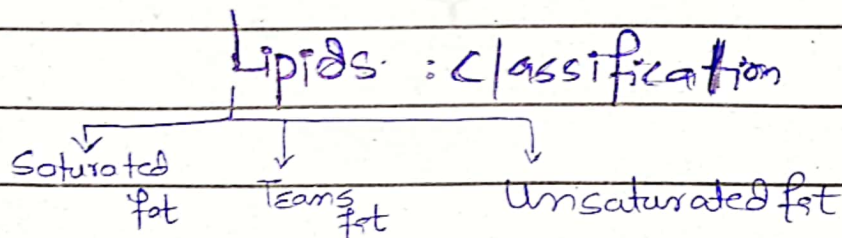 Lipids : Classification
Saturated fat
Trans fat
Unsaturated fat